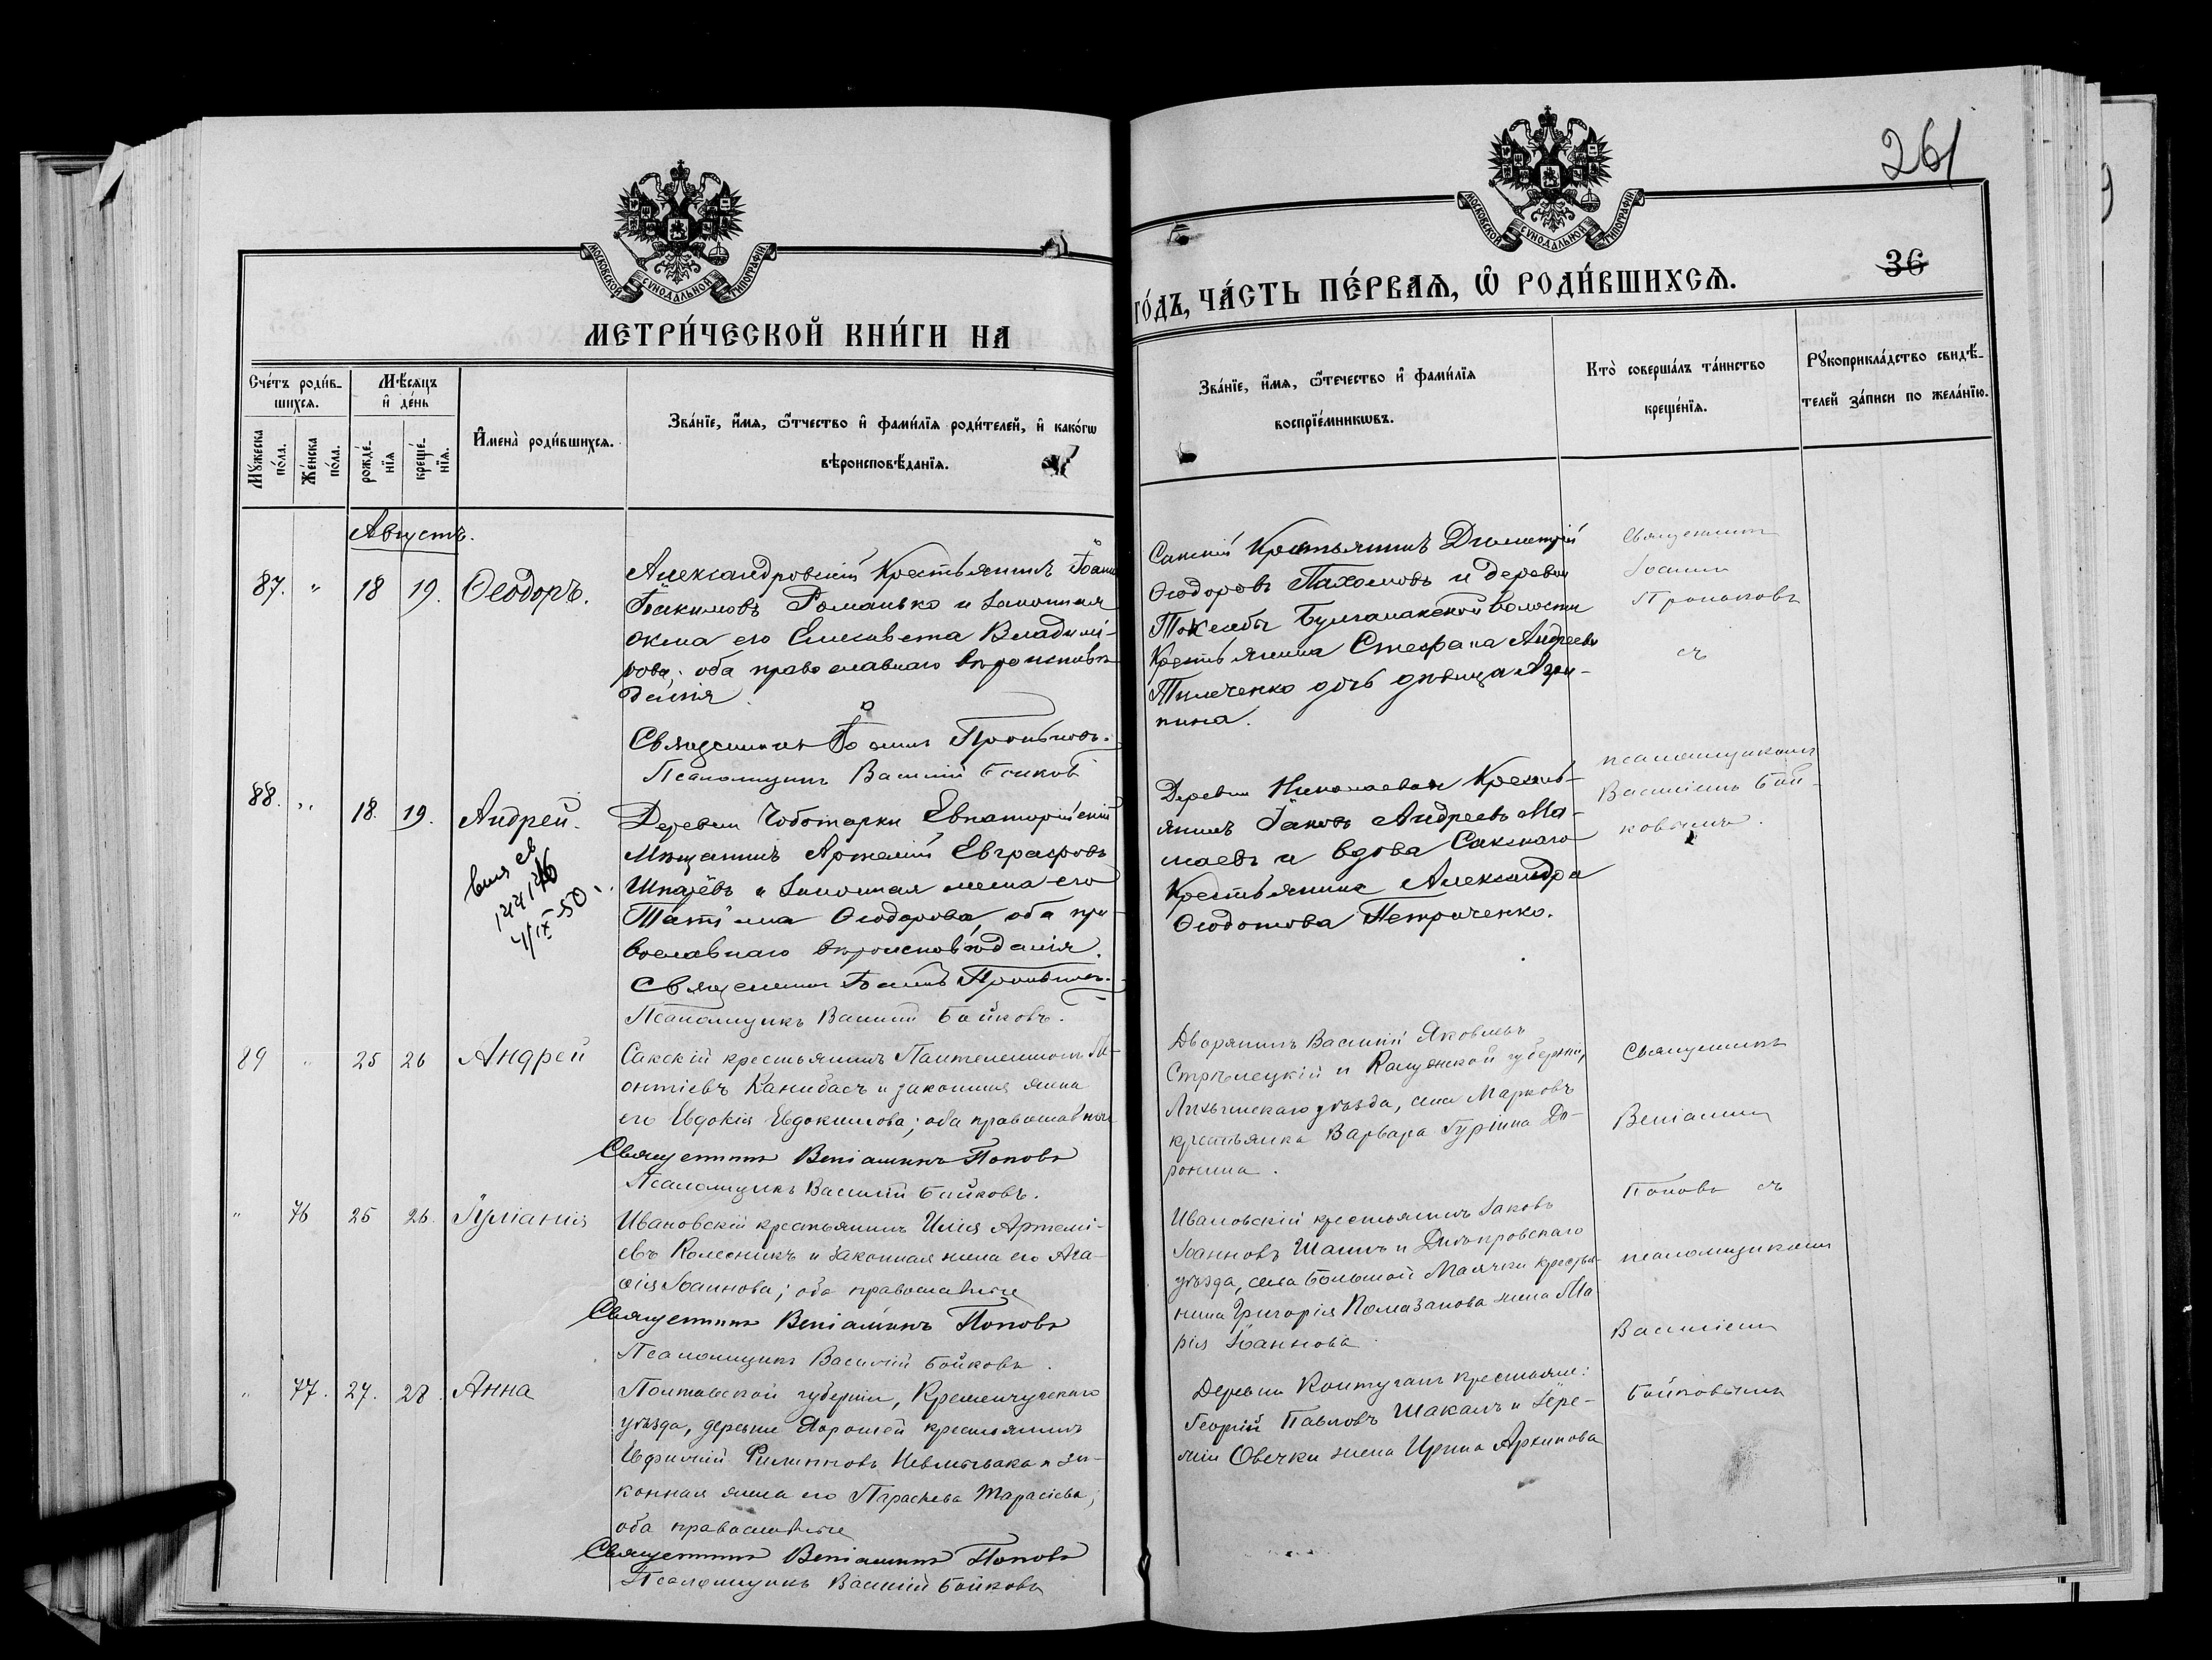 261
МОСКОВСКОЙ СУНОДАЛЬНОЙ ТИПОГРАФІИ
МОСКОВСКОЙ СУНОДАЛЬНОЙ ТИПОГРАФІИ
36
МЕТРИ́ЧЕСКОЙ КНИ́ГИ НА
ГО́ДЪ, ЧА́СТЬ ПЕ́РВАѦ, Ѡ҆ РОДИ́ВШИХСѦ.
Сче́тъ роди́в-
шихсѧ.
Мѣ́сѧцъ
и҆ де́нь
Мꙋ́жеска
по́ла.
Же́нска
по́ла.
рожде́-
нїѧ
креще́-
нїѧ.
И҆мена̀ роди́вшихсѧ.
Зва́нїе, и҆́мѧ, ѻ҆́тчество и҆ фами́лїѧ роди́телей, и҆ како́гѡ
вѣроисповѣ́данїѧ.
Зва́нїе, и҆́мѧ, ѻ҆́течество и҆ фами́лїѧ
воспрїе́мникѡвъ.
Кто̀ соверша́лъ та́инство
креще́нїѧ.
Рꙋкоприкла́дство свидѣ́-
телей за́писи по жела́нїю.
Августъ.
87. " 18 19. Ѳеодоръ.
Александровскій Крестьянинъ Іоаннъ
Іоакимовъ Романько и законная
жена его Елисавета Владимі-
рова; оба православнаго вѣроисповѣ
данія.
Священникъ Іоаннъ Проньковъ.
Псаломщикъ Василій Бойковъ
Сакскій Крестьянинъ Димитрій
Ѳеодоровъ Пахомовъ и деревни
Булганакской волости
Крестьянина Стефана Андреева
дочь дѣвица Агри-
пина.
Священникъ
Іоаннъ
Проньковъ
съ
псаломщикомъ
Василіемъ Бой-
ковымъ.
88. " 18. 19. Андрей.
IX-50
Деревни Чоботарки Евпаторійскій
Мѣщанинъ Артемій Евграфовъ
и законная жена его
Татіана Ѳеодорова, оба пра-
вославнаго вѣроисповѣданія.
Священникъ Іоаннъ Проньковъ.
Псаломщикъ Василій Бойковъ.
Деревни Николаевки Кресть-
янинъ Іаковъ Андреевъ Ма-
маевъ и вдова Сакскаго
Крестьянина Александра
Ѳеодотова Петриченко.
89 " 25 26 Андрей
Сакскій крестьянинъ Пантелеимонъ Ле-
онтіевъ Канибасъ и законная жена
его Евдокія Евдокимова; оба православные
Священникъ Веніаминъ Поповъ
Псаломщикъ Василій Бойковъ.
Дворянинъ Василій Яковлевъ
Стрѣлецкій и Калужской губерніи,
Лихвинскаго уѣзда, села Марковъ
крестьянка Варвара Гурьина До-
ронина.
Священникъ
Веніаминъ
Поповъ съ
псаломщикомъ
Василіемъ
Бойковымъ
" 76 25 26. Іуліанія
Ивановскій крестьянинъ Илія Артемі-
евъ Колесникъ и законная жена его Ага-
ѳія Іоаннова; оба православные
Священникъ Веніаминъ Поповъ
Псаломщикъ Василій Бойковъ.
Ивановскій крестьянинъ Іаковъ
Іоанновъ и Днѣпровскаго
уѣзда, села Большой Маячки крестья-
нина Григорія Помазанова жена Ма
рія Іоаннова
" 77. 27. 28. Анна
Полтавской губерніи, Кременчугскаго
уѣзда, деревни крестьянинъ
Евфимій Филипповъ и за-
конная жена его Параскева Тарасіева;
оба православные
Священникъ Веніаминъ Поповъ
Псаломщикъ Василій Бойковъ
Деревни Контуганъ крестьяне:
Георгій Павловъ Шакалъ и Іере-
міи Овечки жена Ирина Архипова